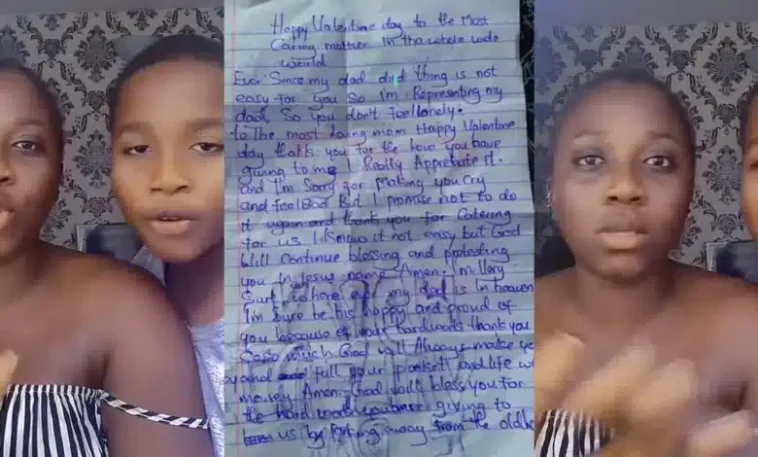 Happy Valentine day to the Most
Caring mother in the whole wide
world
Ever Since my dad died thing is not
easy for you So I'm Representing my
dad So you don't feel lonely.
to The most loving mom Happy Valentine
day thanks you for the love you have
giving to me I Really Appreciate it.
and I'm Sorry for Making you Cry
and feel Bad But I promise not to do
it again and thank you for Catering
for us I know it not easy but God
Will Continue blessing and protecting
you In Jesus name Amen. I'm Very
Sure where ever my dad is In heaven
I'm Sure he his happy and proud of
you because of your hardwork thank you
so much God will Always make
and full your pocket and life
money Amen. God will bless you for
the hard work you have giving to
us by
away from the